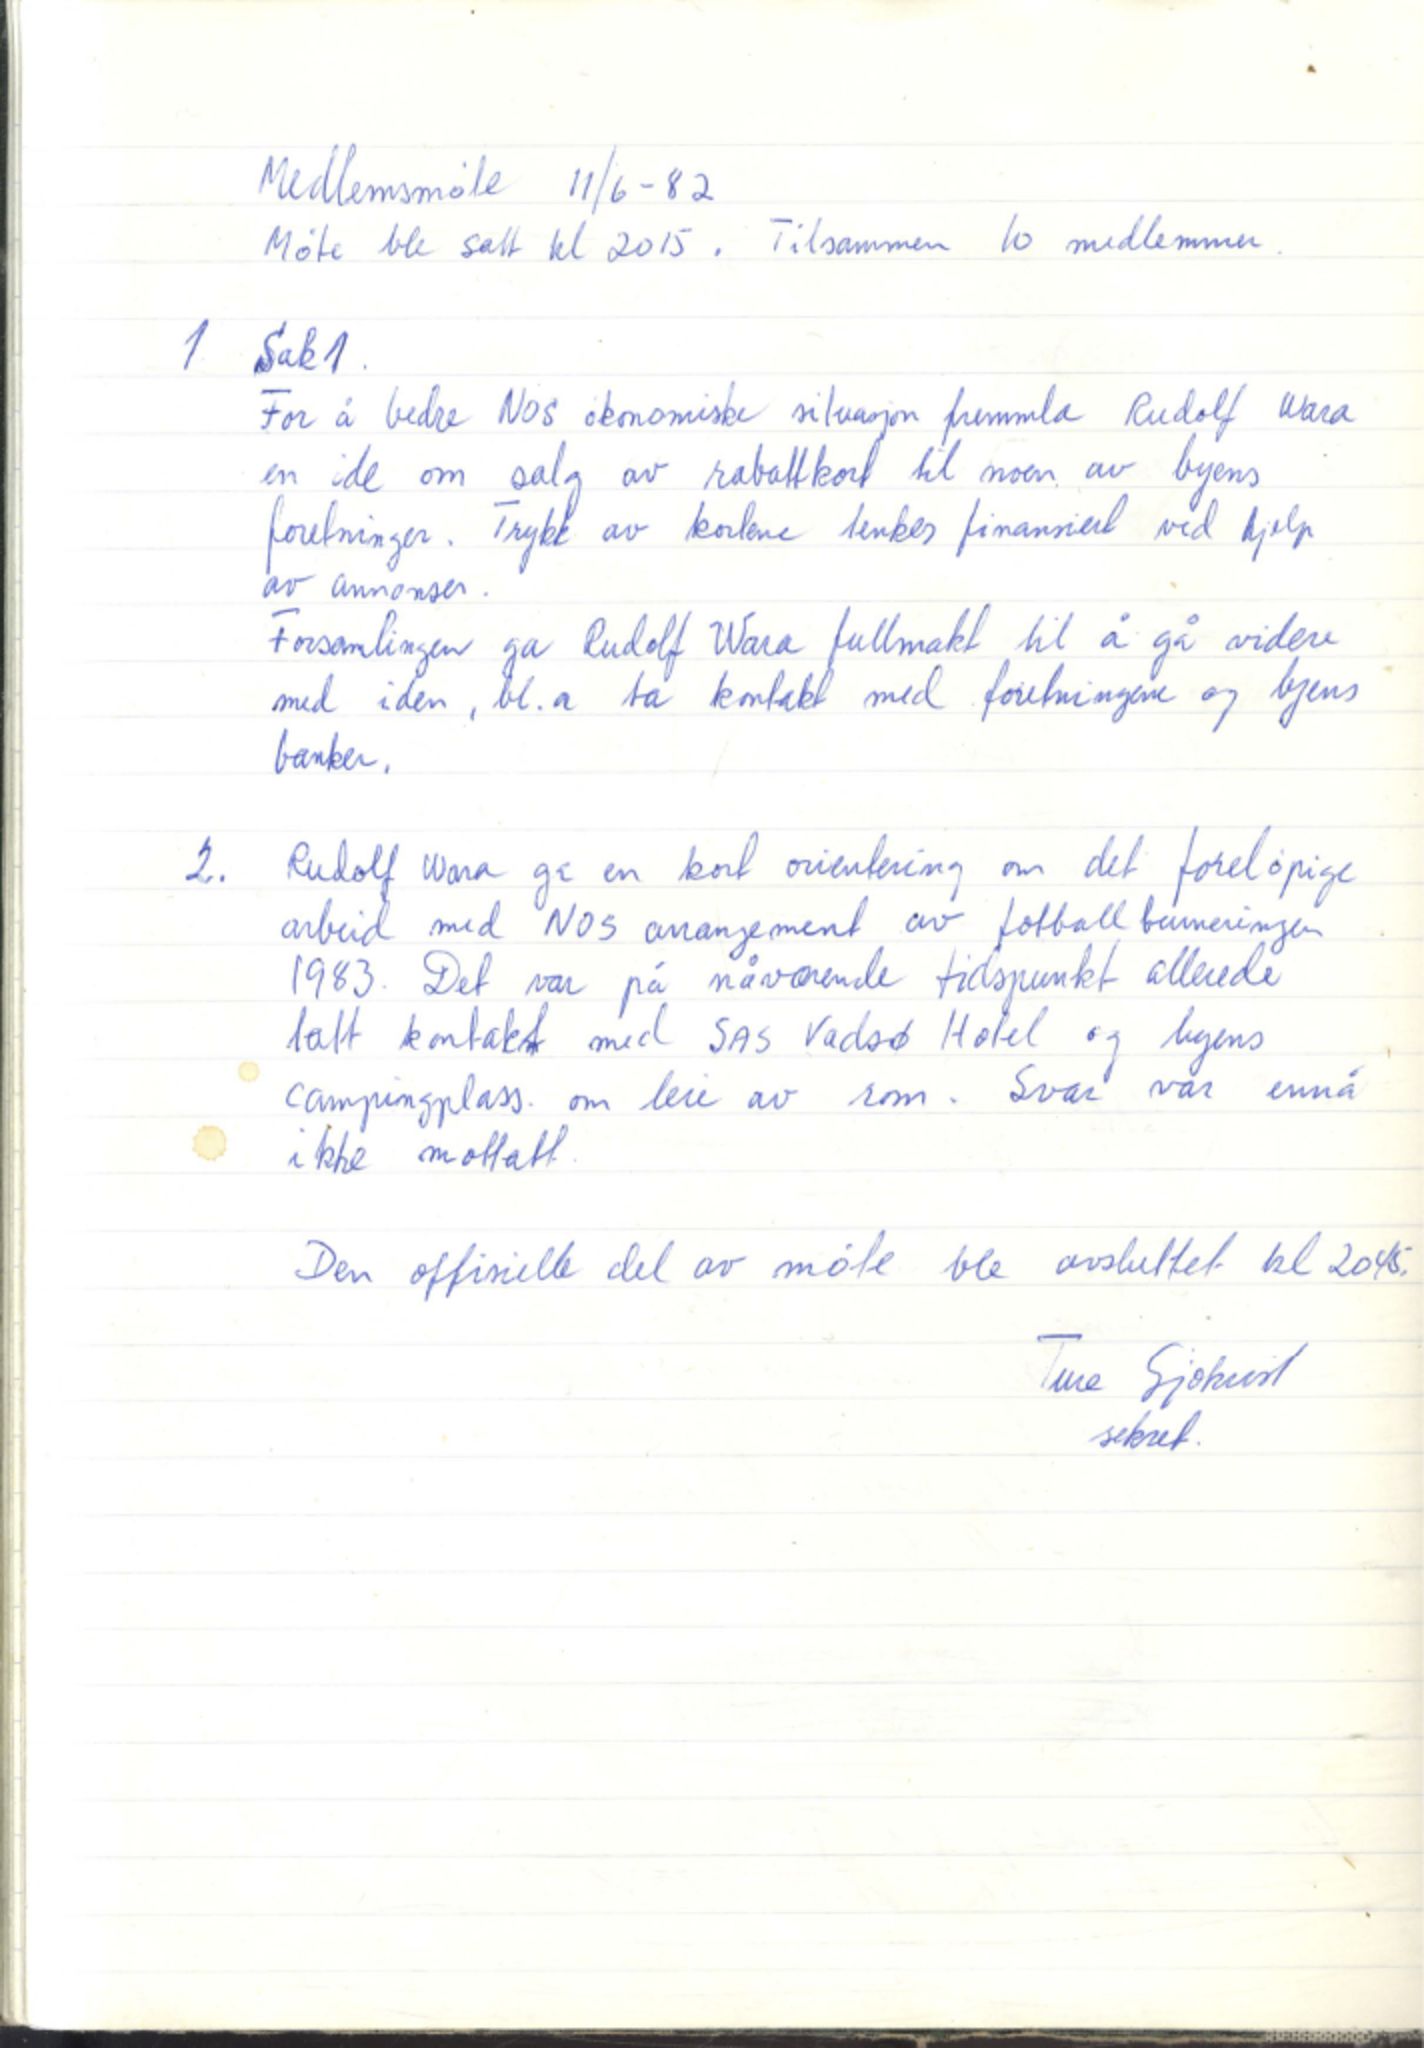 Medlemsmöte 11/6-82
Möte ble satt kl 2015. Tilsammen 10 medlemmer.
1 Sak 1.
For å bedre NOS ökonomiske situasjon fremmla Rudolf Wara
en ide om salg av rabattkort til noen av byens
foretninger. Trykk av kortene tenkes finansiert ved hjelp
av annonser.
Forsamlingen ga Rudolf Wara fullmakt til å gå videre
med iden, bl.a ta kontakt med foretningene og byens
banker.
2. Rudolf Wara ga en kort orientering om det forelöpige
arbeid med NOS arrangement av fotballturneringen
1983. Det var på nåværende tidspunkt allerede
tatt kontakt med SAS Vadsø Hotel og byens
campingplass. om leie av rom. Svar var ennå
ikke mottatt.
Den offisielle del av möte ble avsluttet kl 2045.
Ture
sekret.